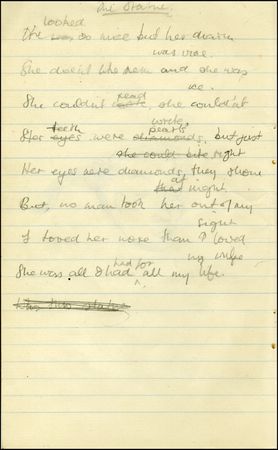 The Statue
looked
She was so nice but her charm
was vice.
She doesn't like men and she was
ice.
read
She couldn't write, she couldn't
write,
teeth pearls
Her eyes were diamonds, but just
she could bite right
Her eyes were diamonds, they shone
at
that night.
But, no man took her out of my
sight
I loved her more than I loved
my wife
had for
She was all I had all my life.